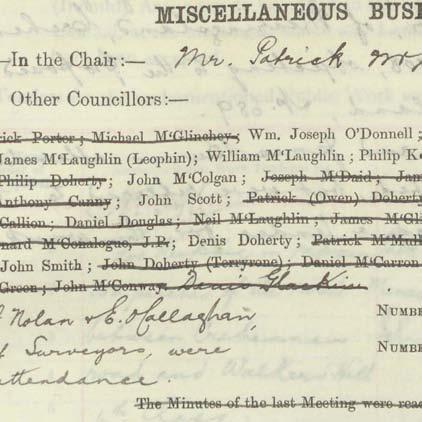 MISCELLANEOUS BUSI
—In the Chair:— Mr. Patrick
Other Councillors:—
rick Porter; Michael M'Glinchey; Wm. Joseph O'Donnell;
James M'Laughlin (Leophin); William M'Laughlin; Philip K
Philip Doherty; John M'Colgan; Joseph M'Daid; Jam
Anthony Canny; John Scott; Patrick (Owen) Doherty
Callion; Daniel Douglas; Neil M'Laughlin; James M'Gl
nard M'Conalogue, J.P.; Denis Doherty; Patrick M'Mull
John Smith; John Doherty (Terryrone); Daniel M'Carron
Green; John M'Conway, Denis Glackin
Nolan & E. O'Callaghan, NUMBE
Surveyors, were NUMBE
attendance.
The Minutes of the last Meeting were read